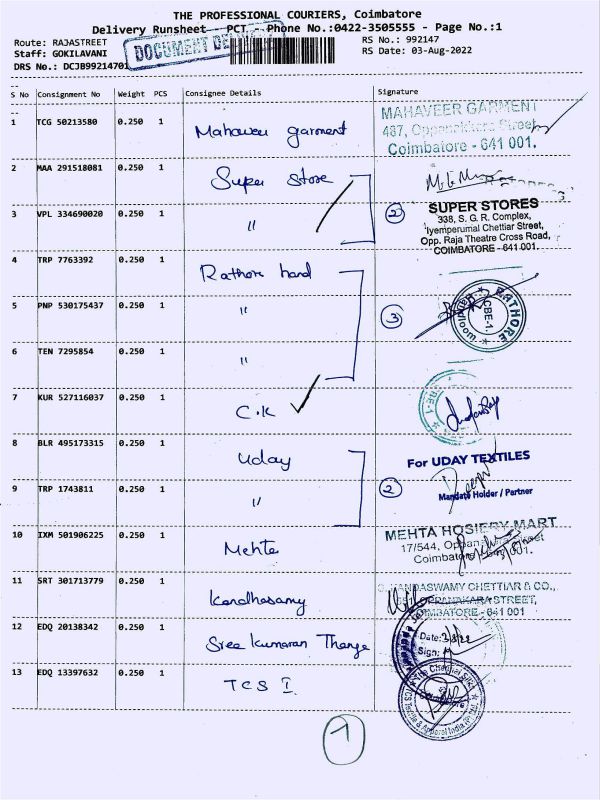 THE PROFESSIONAL COURIERS, Coimbatore
Delivery Runsheet - PCT - Phone No.:0422-3505555 - Page No.:1
Route: RAJASTREET
RS No.: 992147
Staff: GOKILAVANI
RS Date: 03-Aug-2022
DRS No.: DCJB9921470
DOCUMENT
S No Consignment No Weight PCS Consignee Details Signature
1 TCG 50213580 0.250 1 Mahaveer garment
MAHAVEER GARMENT
487, Street,
Coimbatore - 641 001.
2 MAA 291518081 0.250 1 Super Store
3 VPL 334690020 0.250 1 "
2
SUPER STORES
338, S. G. R. Complex,
Iyemperumal Chettiar Street,
Opp. Raja Theatre Cross Road,
COIMBATORE - 641 001.
4 TRP 7763392 0.250 1 Rathore hand
5 PNP 530175437 0.250 1 "
3
RATHORE
CBE-1.
6 TEN 7295854 0.250 1 "
7 KUR 527116037 0.250 1 C.K
8 BLR 495173315 0.250 1 Uday
For UDAY TEXTILES
9 TRP 1743811 0.250 1 "
2
Mandate Holder / Partner
10 IXM 501906225 0.250 1 Mehta
MEHTA HOSIERY MART
17/544,
Coimbatore
11 SRT 301713779 0.250 1 Kandhasamy
KANDASWAMY CHETTIAR & CO.,
OPPANAKARA STREET,
COIMBATORE - 641 001
12 EDQ 20138342 0.250 1 Sree Kumaran Thanga
Date:
Sign:
13 EDQ 13397632 0.250 1 TCS I
The Chennai Silks
Coimbatore
1